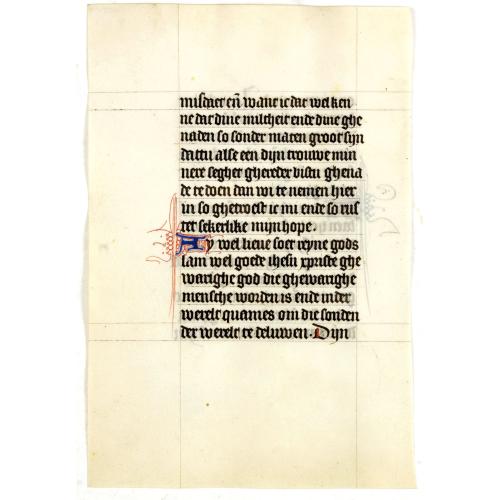 misdaet en̄ want ic dat wel ken
ne dat dine miltheit ende dine ghe
naden so sonder maten groot syn
dattu alse een dijn trouwe min
nere segher ghereder bistu ghena
de te doen dan wi te nemen hier
in so ghetroest ic mi ende so rus
tet sekerlike mijn hope.
Ay wel lieue soet reyne gods
lam wel goede ihesu xpriste ghe
warighe god die ghewarighe
mensche worden is ende inder
werelt quames om die sonden
der werelt te deluwen. Dijn